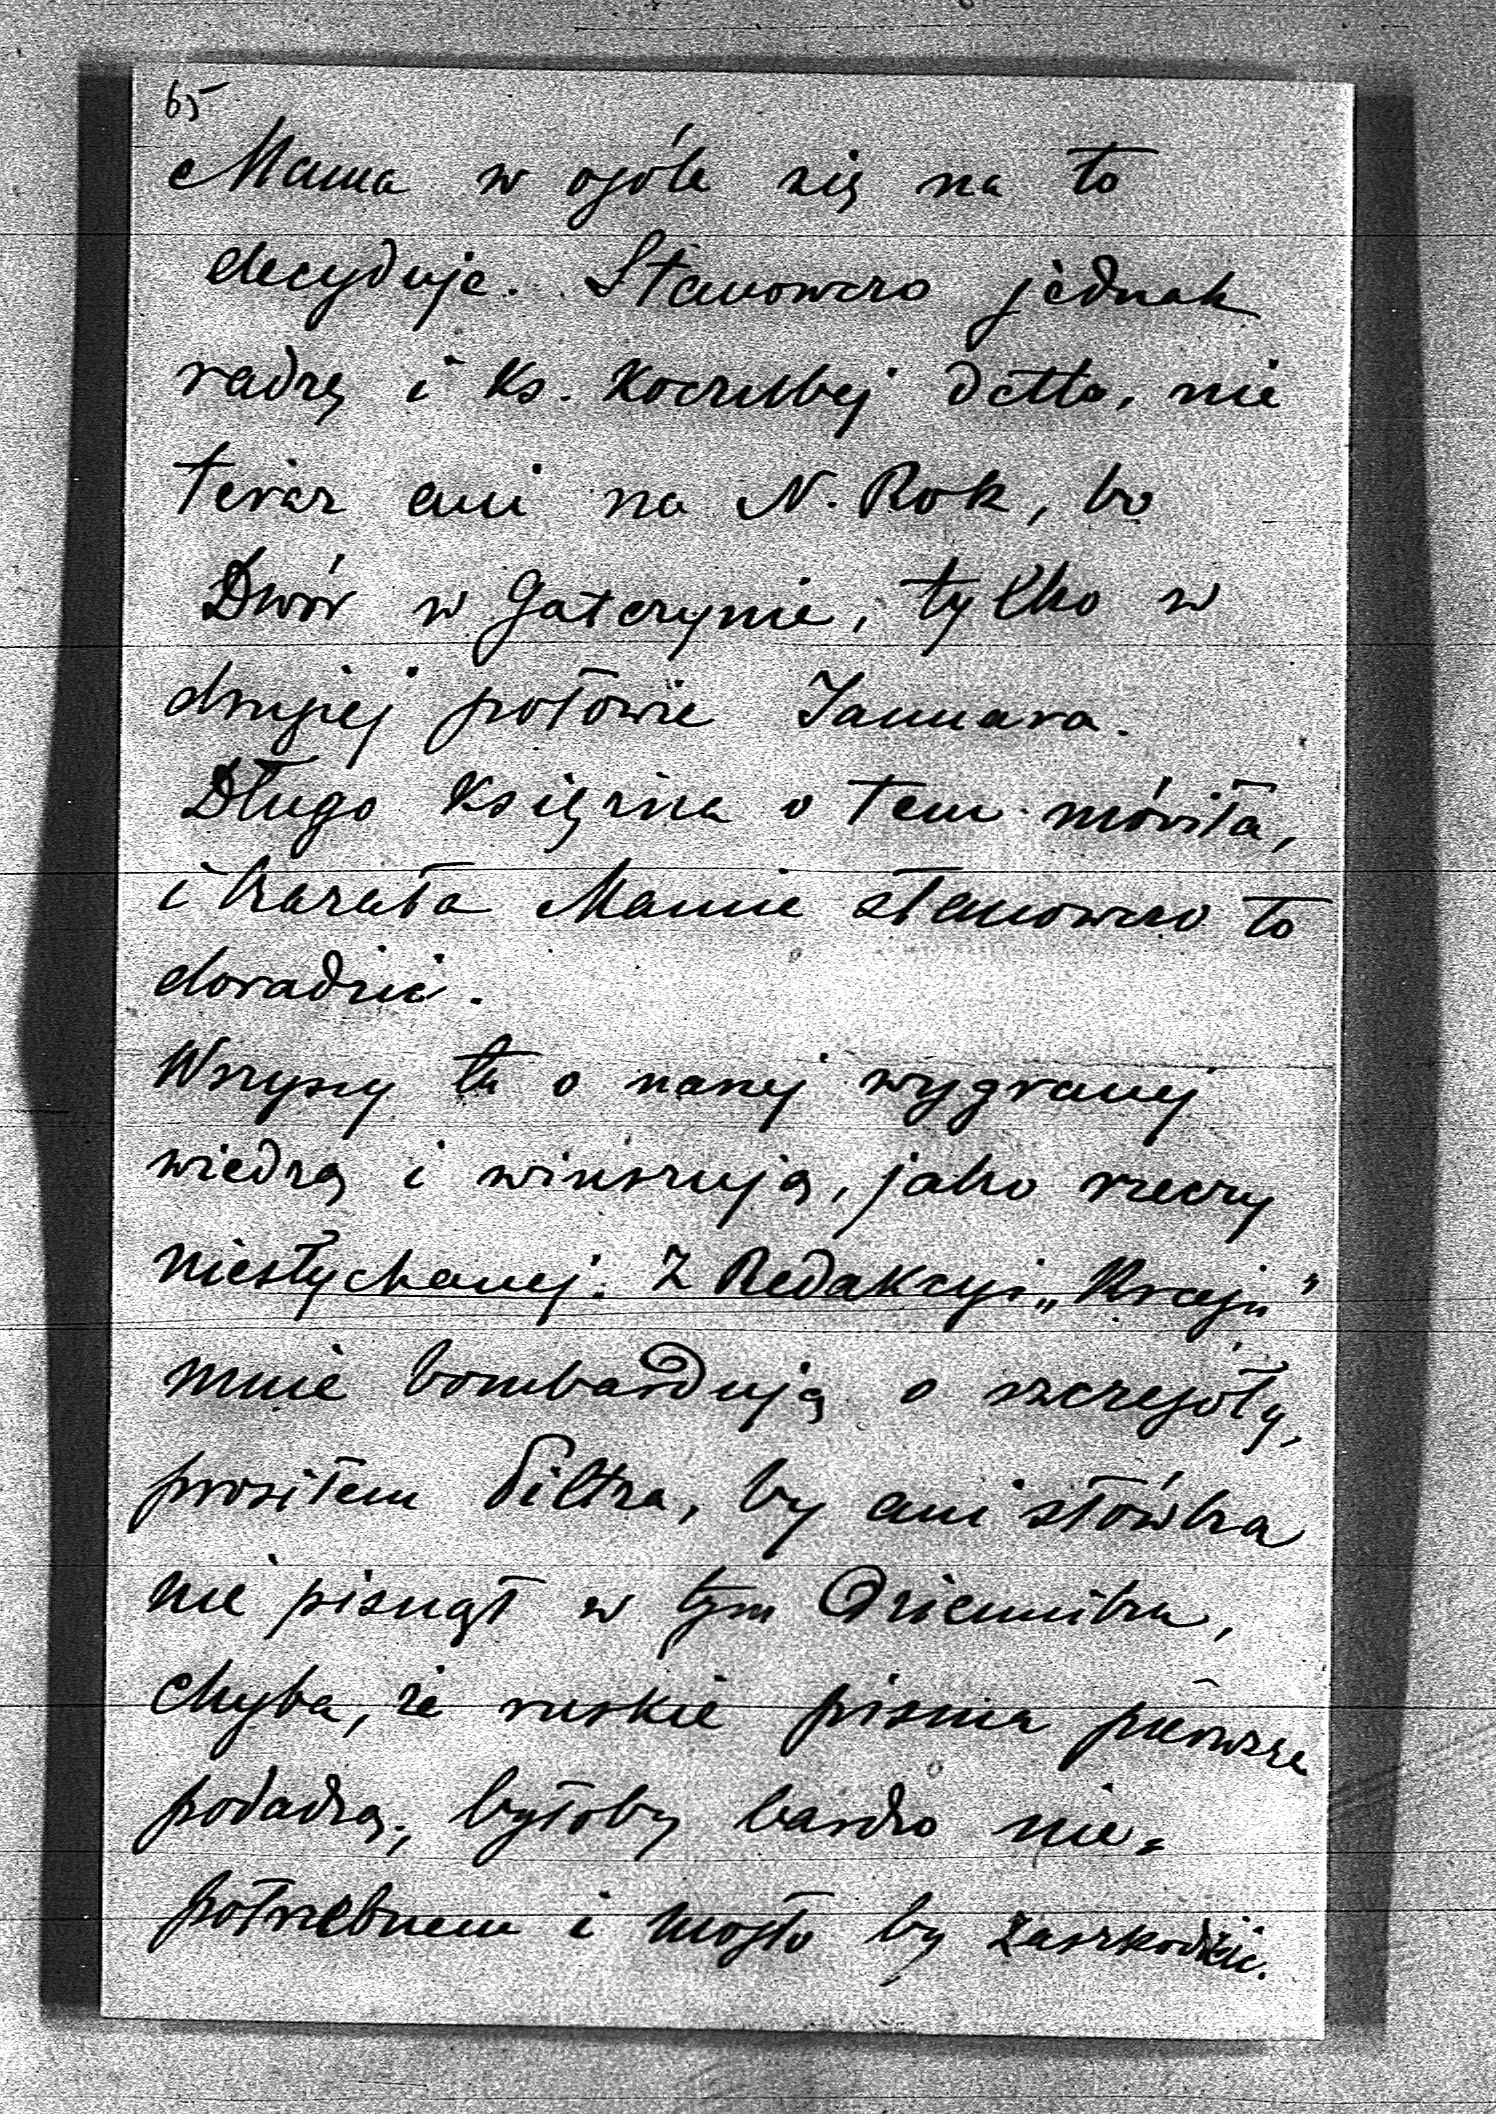 65
Mama w ogóle się na to
decyduje. Stanowczo jednak
radzę i Ks. Koczubej detto, nie
teraz ani na N. Rok, bo
Dwór w Gatczynie, tylko w
drugiej połowie Januara.
Długo Księżna o tem mówiła,
i kazała Mamie stanowczo to
doradzić.
Wszyscy tu o naszej wygranej
wiedzą i winszują, jako rzeczy
niesłychanej. Z Redakcyi „Kraju"
mnie bombardują o szczegóły,
prosiłem Piltza, by ani słówka
nie pisnął w tym Dzienniku,
chyba, że ruskie pisma pierwsze
podadzą, byłoby bardzo nie=
potrzebnem i mogło by zaszkodzić.